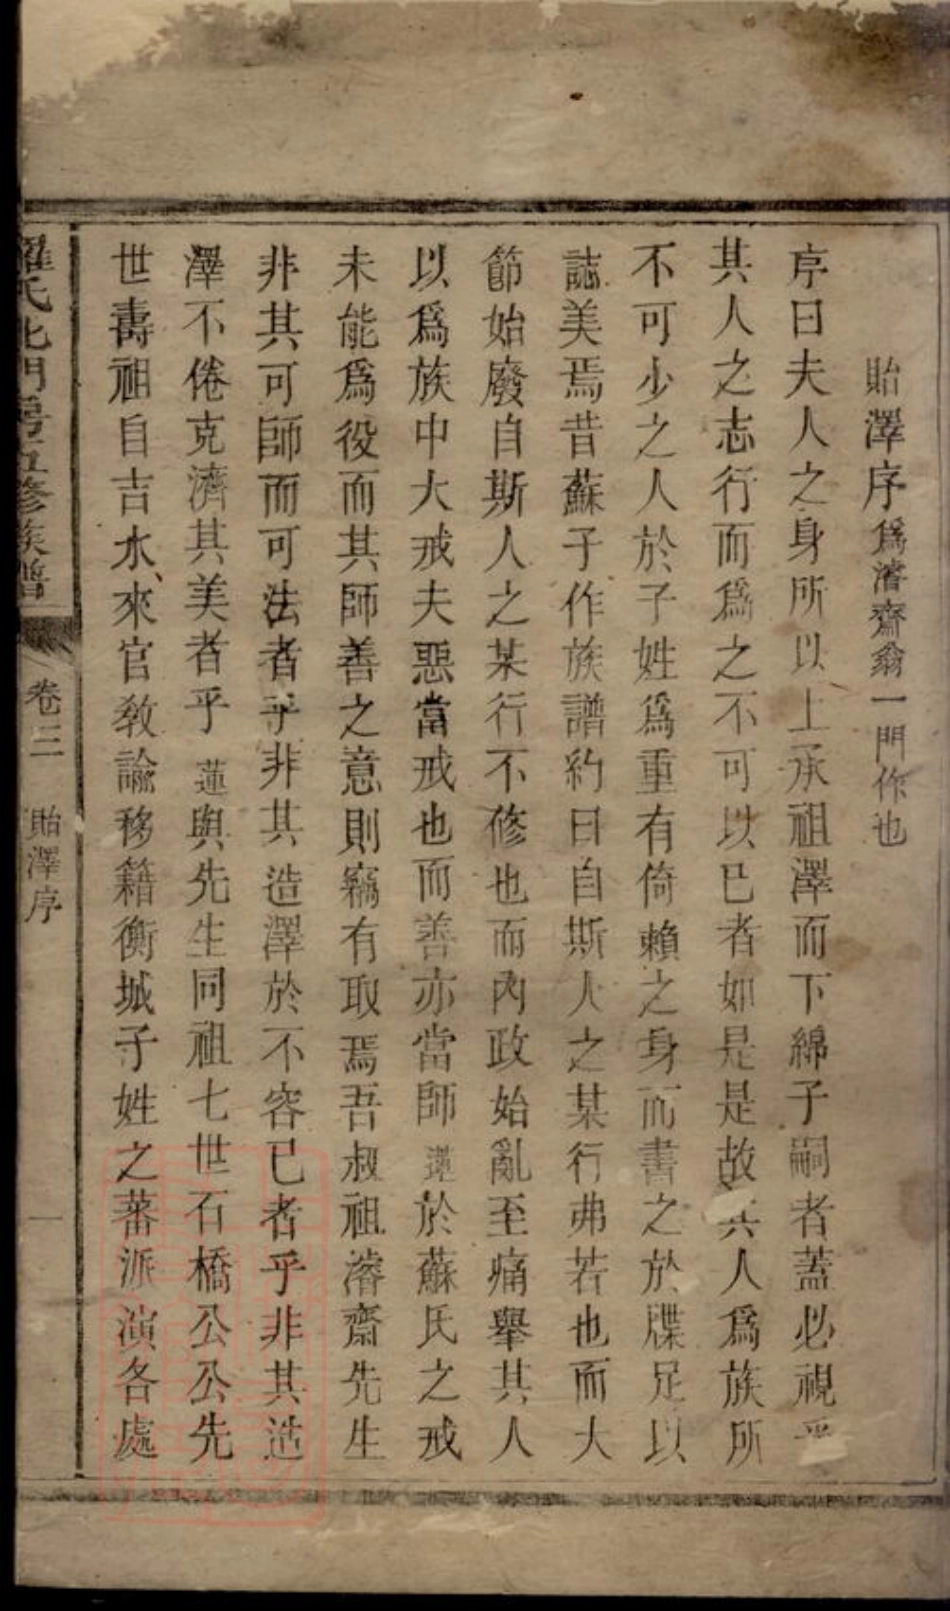 貽澤序為濬齋翁一門作也
序曰夫人之身所以上承祖澤而下綿子嗣者蓋必視乎
其人之志行而為之不可以已者如是是故其人為族所
不可少之人於子姓為重有倚賴之身而書之於牒足以
誌美焉昔蘇子作族譜約曰自斯人之某行弗若也而大
節始廢自斯人之某行不修也而內政始亂至痛舉其人
以為族中大戒夫惡當戒也而善亦當師蓮於蘇氏之戒
未能為役而其師善之意則竊有取焉吾叔祖濬齋先生
非其可師而可法者乎非其造澤於不容已者乎非其造
澤不倦克濟其美者乎蓮與先生同祖七世石橋公公先
世壽祖自吉水來官教諭移籍衡城子姓之蕃派演各處
羅氏北門房五修族譜
卷三
貽澤序
一